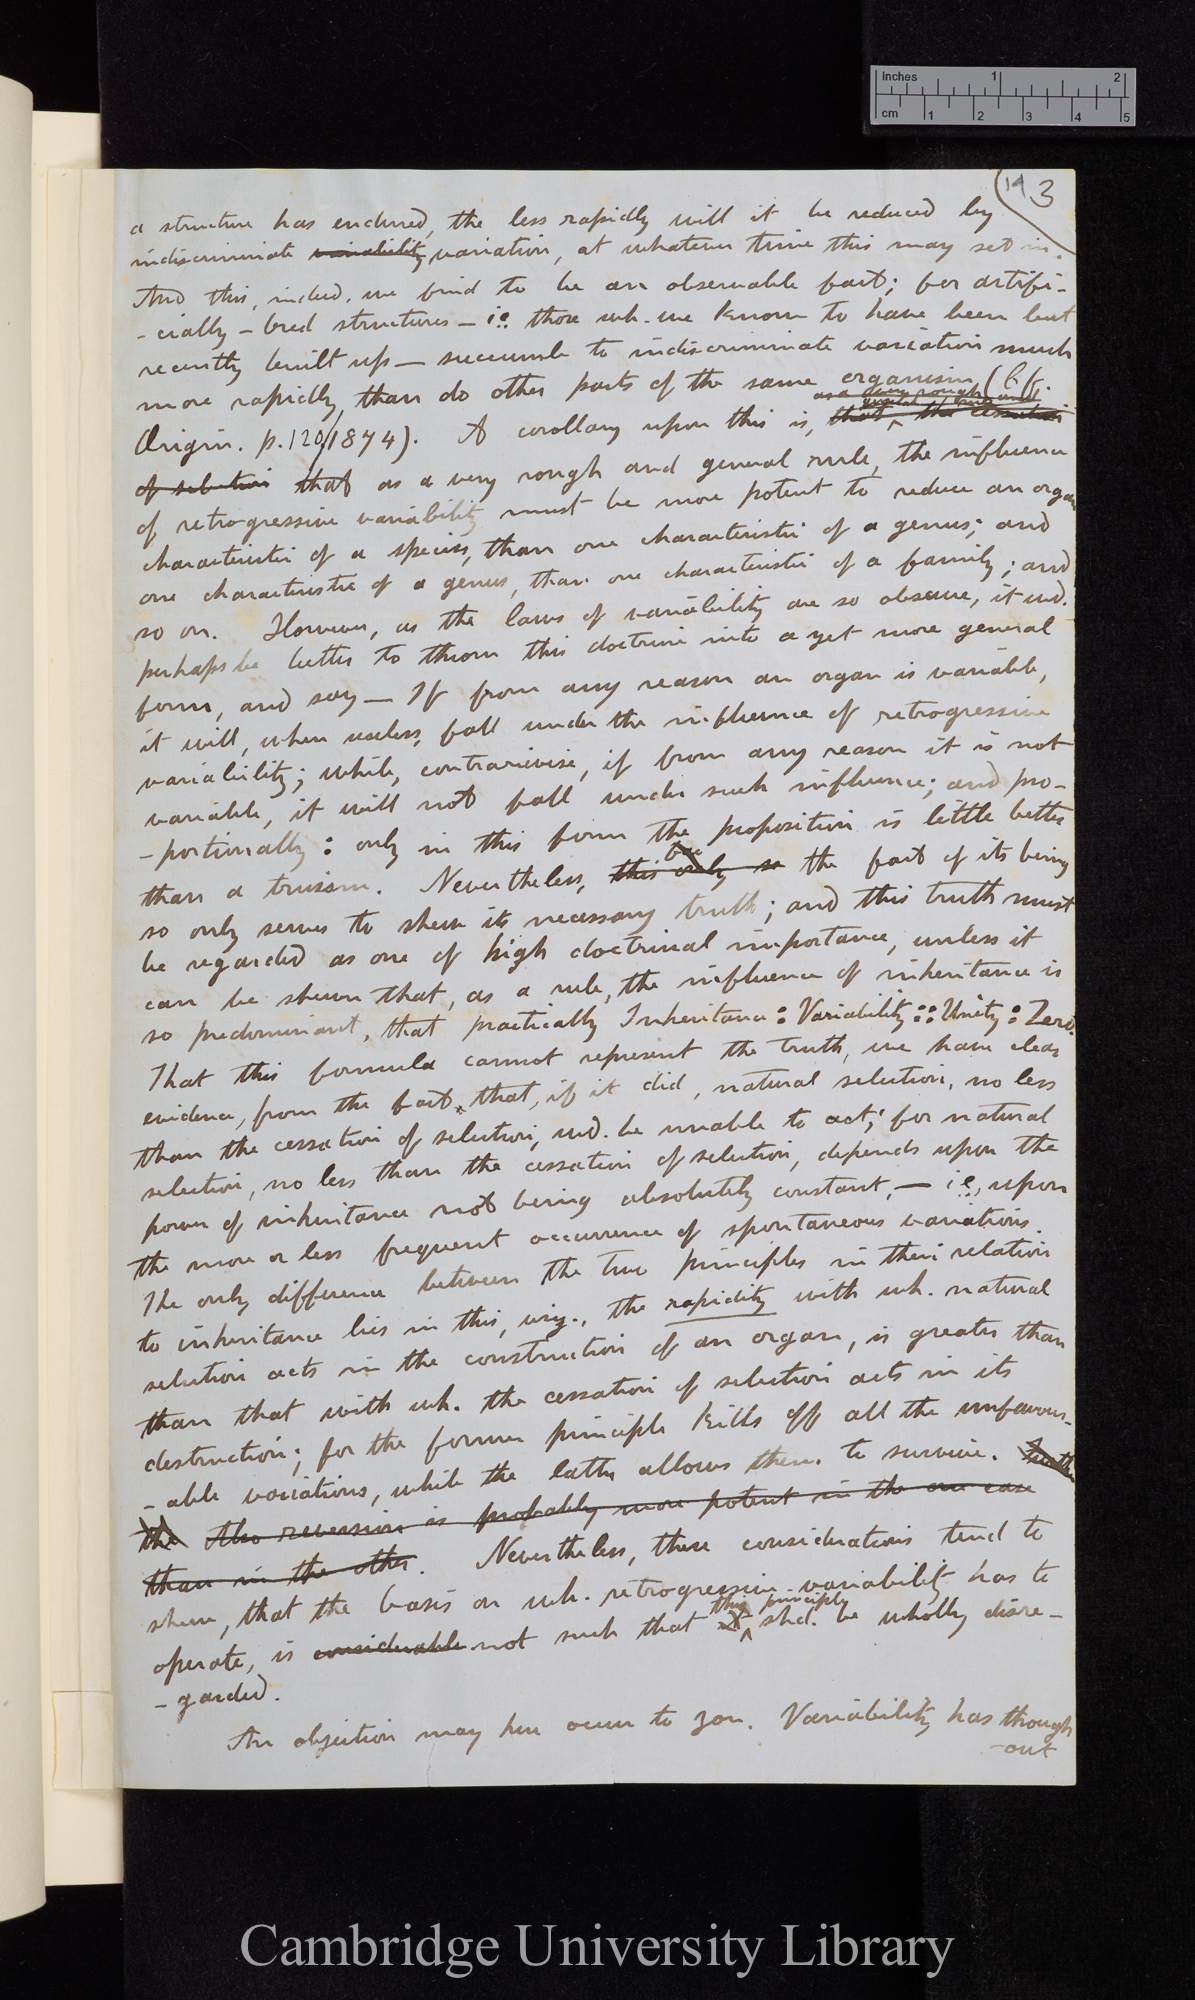 Inches 1 2
cm 1 2 3 4 5
14 3
a structure has endured, the less rapidly will it be reduced by
indiscriminate variability variation, at whatever time this may set in.
And this, indeed, we find to be an observable fact; for artifi-
-cially-bred structures — i.e. those wh. we know to have been but
recently built up — succumb to indiscriminate variation much
more rapidly, than do other parts of the same organism (Cf.
as a very rough
general rule and
Origin. p. 120, 1874). A corollary upon this is, that, the cessation
of selection that as a very rough and general rule, the influence
of retrogressive variability must be more potent to reduce an organ
characteristic of a species, than one characteristic of a genus; and
one characteristic of a genus, than one characteristic of a family; and
so on. However, as the laws of variability are so obscure, it wd.
perhaps be better to throw this doctrine into a yet more general
form, and say — If from any reason an organ is variable,
it will, when useless, fall under the influence of retrogressive
variability; while, contrariwise, if from any reason it is not
variable, it will not fall under such influence; and pro-
-portionally: only in this form the proposition is little better
than a truism. Nevertheless, this only so the fact of its being
so only serves to shew its necessary truth; and this truth must
be regarded as one of high doctrinal importance, unless it
can be shewn that, as a rule, the influence of inheritance is
so predominant, that practically Inheritance : Variability :: Unity : Zero.
That this formula cannot represent the truth, we have clear
evidence, from the fact, that, if it did, natural selection, no less
than the cessation of selection, wd. be unable to act; for natural
selection, no less than the cessation of selection, depends upon the
power of inheritance not being absolutely constant, — i.e., upon
the more or less frequent occurrence of spontaneous variations.
The only difference between the two principles in their relation
to inheritance lies in this, viz., the rapidity with wh. natural
selection acts in the construction of an organ, is greater than
than that with wh. the cessation of selection acts in its
destruction; for the former principle kills off all the unfavour-
-able variations, while the latter allows them to survive.
the Also reversion is probably more potent in the one case
than in the other. Nevertheless, these considerations tend to
shew, that the basis on wh. retrogressive variability has to
this principle
operate, is considerable not such that it shd. be wholly disre-
-garded.
An objection may here occur to you. Variability has through
-out
Cambridge University Library